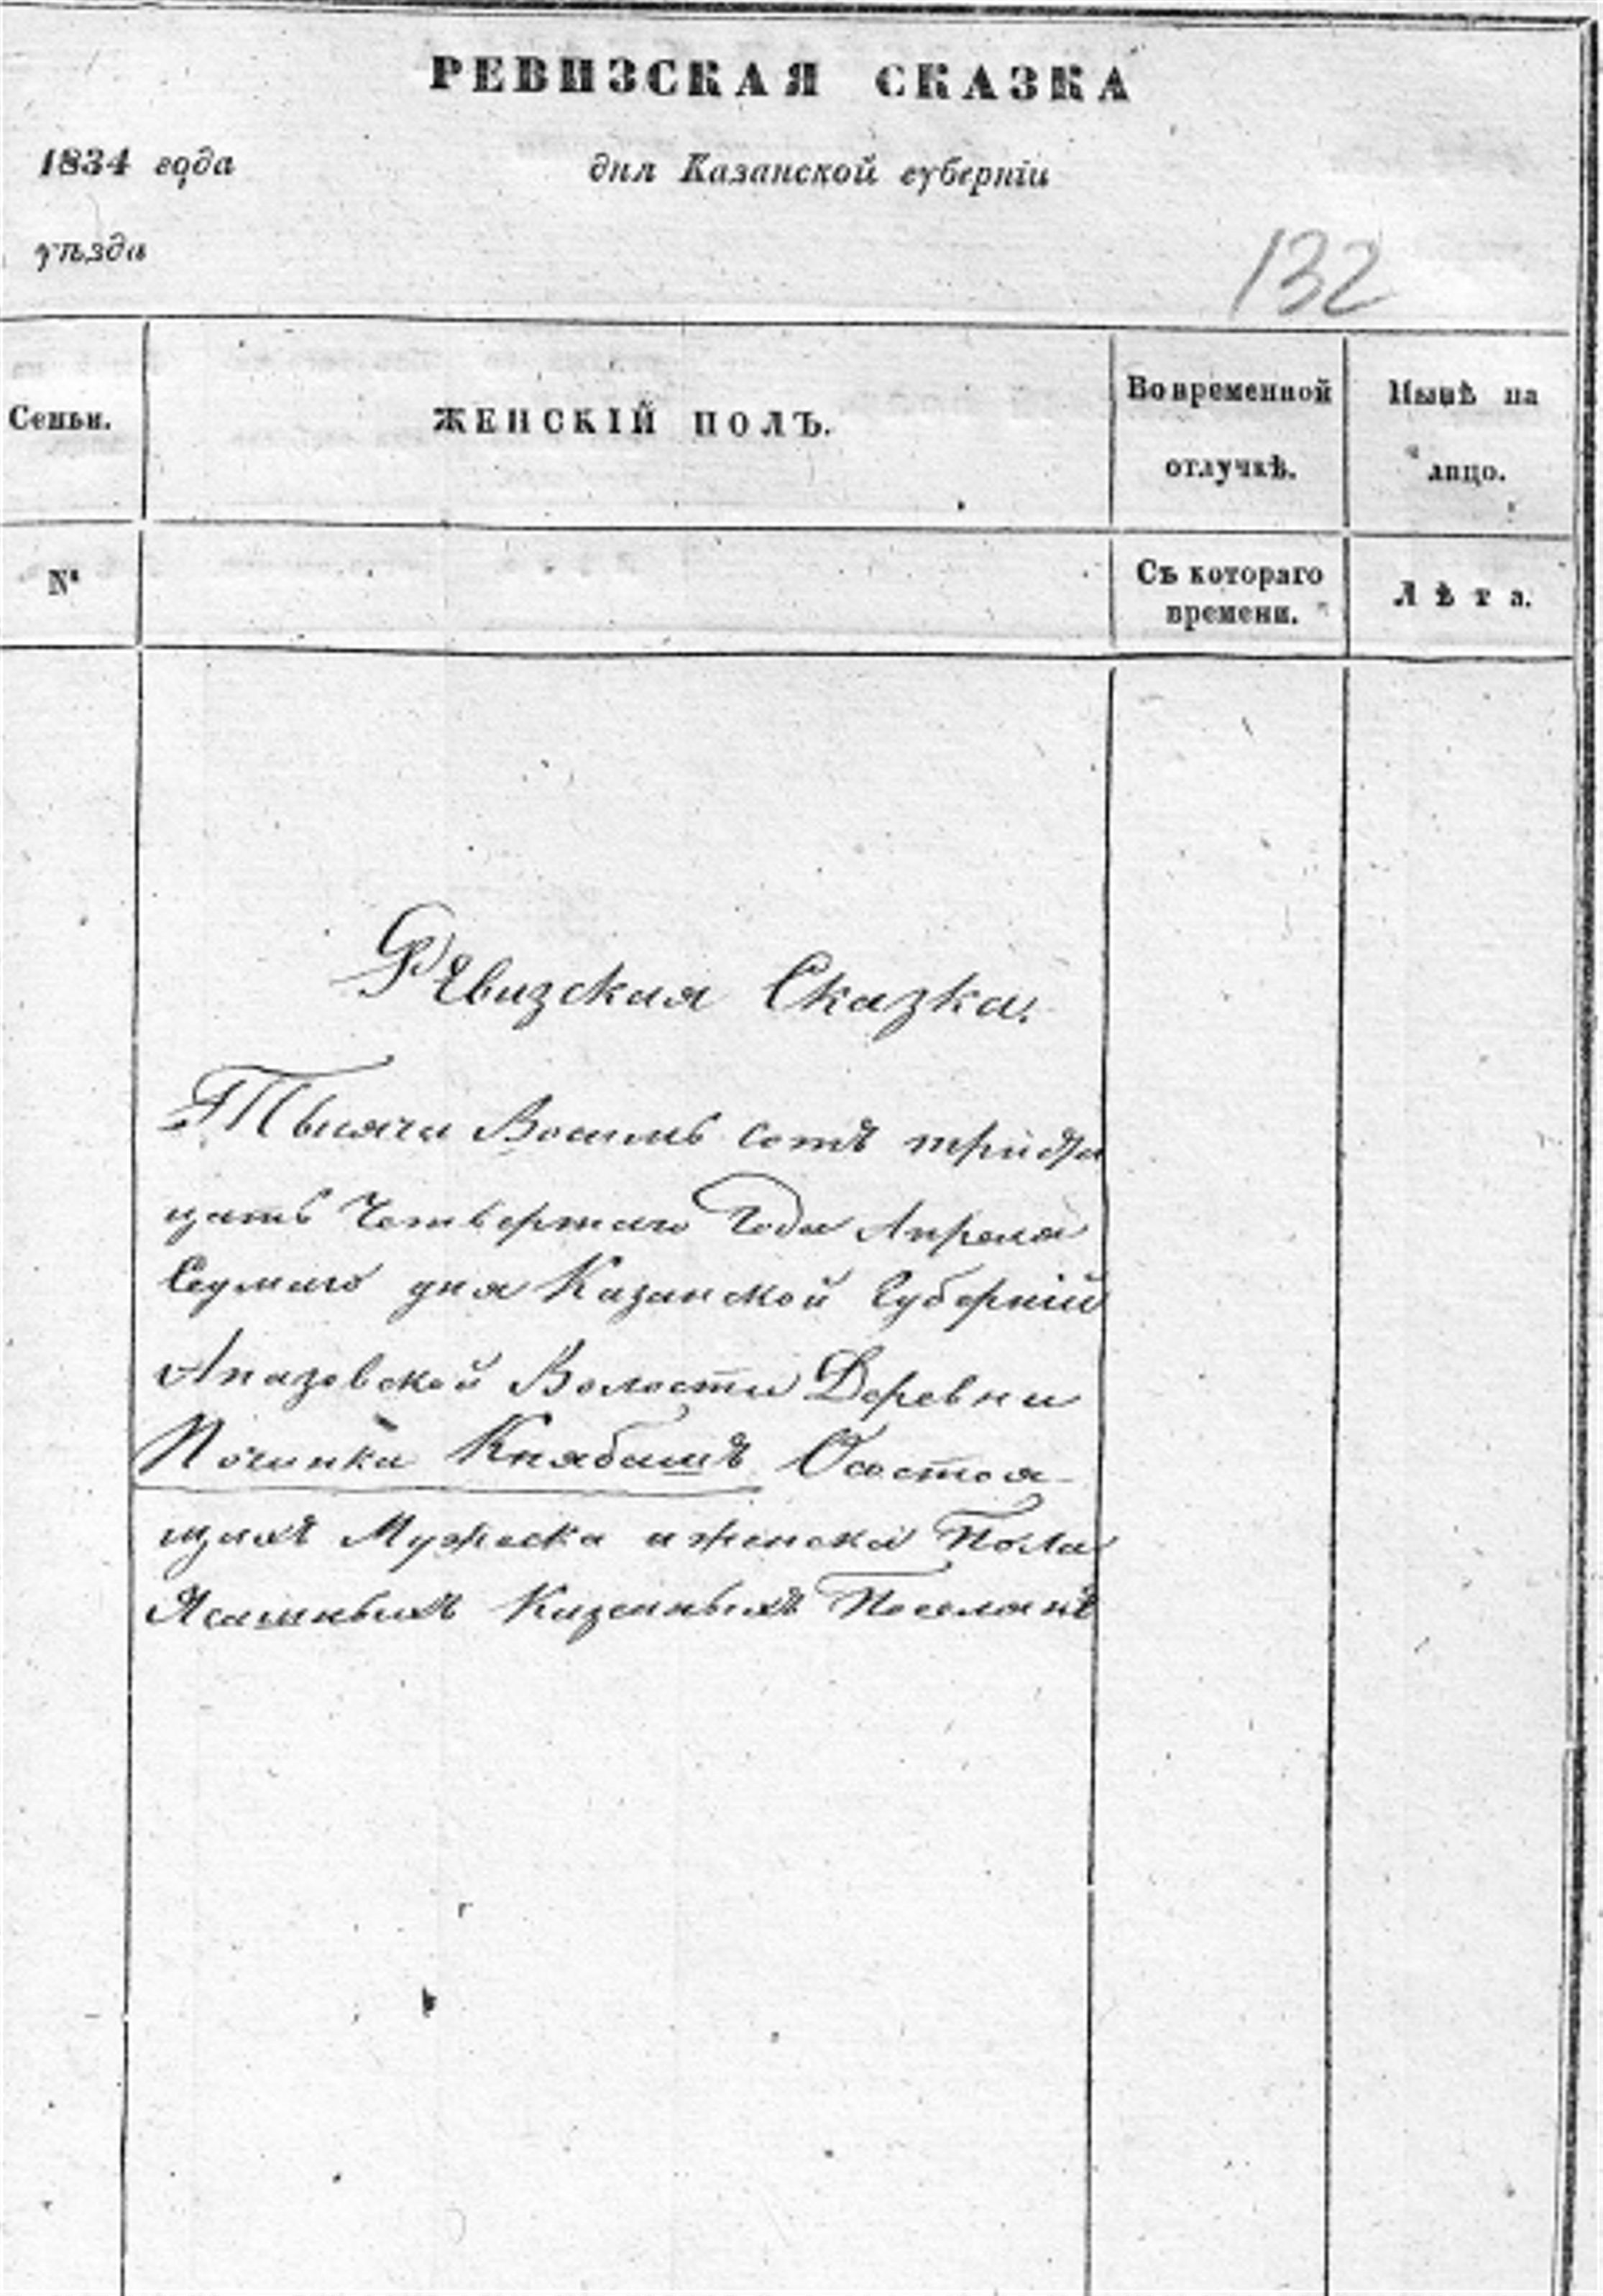 РЕВИЗСКАЯ СКАЗКА
1834 года дня Казанской губерніи
уѣзда
132
Семьи. ЖЕНСКІЙ ПОЛЪ. Во временной отлучкѣ. Нынѣ на лицо.
№ Съ котораго времени. Лѣта.
Ревизская Сказка.
Тысяча Восемь сотъ тридца
цать Четвертаго Года Апреля
Седмаго дня Казанской Губерніи
Апазовской Волости Деревни
Починка Княбашъ О состоя-
щихъ Мужеска и женска Пола
Ясашныхъ Казенныхъ Поселянъ